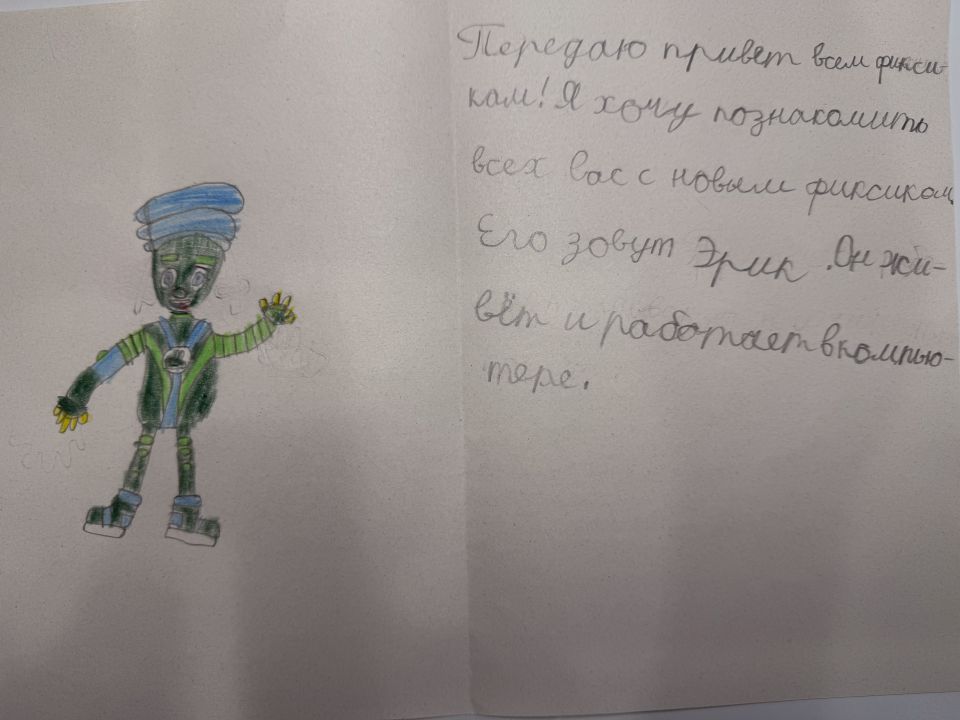 Передаю привет всем фикси-
кам! Я хочу познакомить
всех вас с новым фиксиком.
Его зовут Эрик. Он жи-
вёт и работает в компью-
тере.